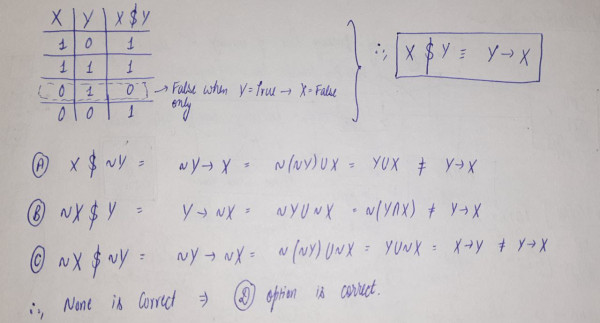 X Y X $ Y
1 0 1
1 1 1
0 1 0 → False when Y = True → X = False only
0 0 1
∴, X $ Y ≡ Y → X
(A) X $ ~Y = ~Y → X = ~(~Y) ∪ X = Y ∪ X ≠ Y → X
(B) ~X $ Y = Y → ~X = ~Y ∪ ~X = ~(Y ∩ X) ≠ Y → X
(C) ~X $ ~Y = ~Y → ~X = ~(~Y) ∪ ~X = Y ∪ ~X = X → Y ≠ Y → X
∴, None is correct ⇒ (D) option is correct.